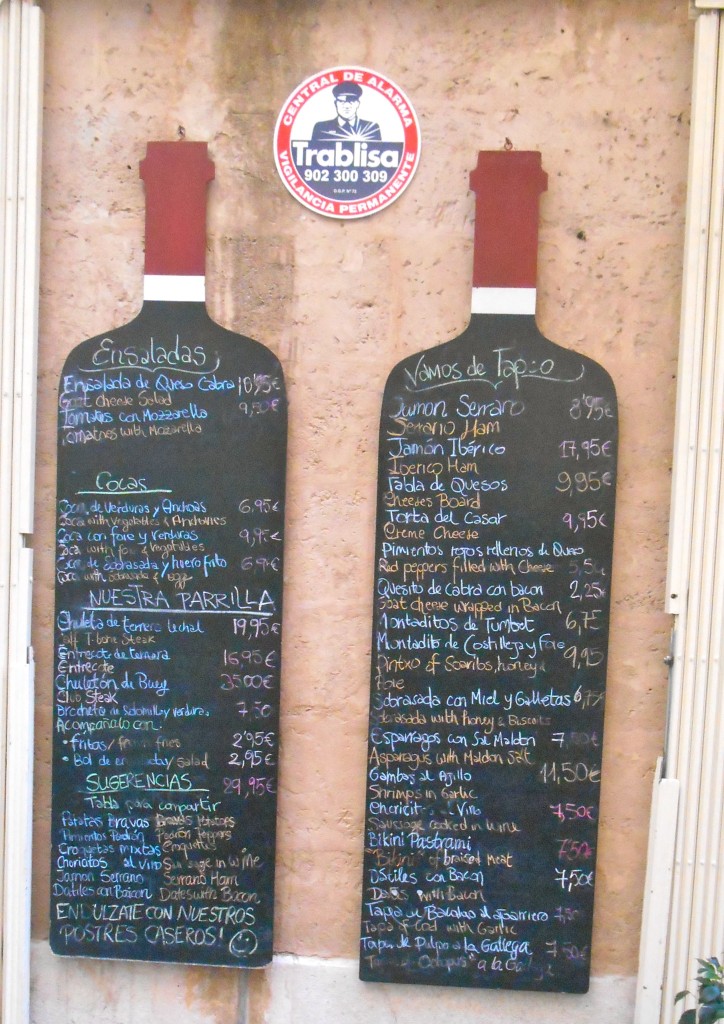 CENTRAL DE ALARMA
Trablisa
902 300 309
VIGILANCIA PERMANENTE
Ensaladas
Ensalada de Queso Cabra 10'95€
Goat cheese Salad 9,50€
Tomates con Mozzarella
Tomatoes with Mozarella
Cocas
Coca de Verduras y 6,95€
Coca with vegetables &
Coca con foie y verduras 9,95€
Coca with foie & vegetables
Coca de Sobrasada y huevo frito 6,90€
Coca with sobrasada & egg
NUESTRA PARRILLA
Chuleta de ternera lechal 19,95€
T-bone Steak
Entrecot de ternera 16,95€
Entrecote
Chuletón de Buey 25.00€
Club Steak
Brocheta de Solomillo y verduras 7.50
Acompáñalo con:
• fritas/ fries 2'95€
• Bol de /salad 2,95€
SUGERENCIAS 29,95€
Tabla para compartir
Patatas Bravas Potatoes
Pimientos Padrón Padron Peppers
Croquetas mixtas Croquettes
Choricitos al vino Sausage in wine
Jamon Serrano Serrano Ham
Datiles con Baicon Dates with Bacon
ENDULZATE CON NUESTROS
¡POSTRES CASEROS!
Vamos de Tapeo
Jamon Serrano 8'95€
Serrano Ham
Jamón Ibérico 17,95€
Iberico Ham
Tabla de Quesos 9,95€
Cheeses Board
Torta del Casar 9,95€
Creme Cheese
Pimientos rojos rellenos de Queso
Red peppers filled with Cheese 5,50
Quesito de cabra con bacon 2,25€
Goat cheese wrapped in Bacon
Montaditos de Tumbet 6,75
Muntadito de Costilleja y Foie 9,95
Pintxo of Sparibs, honey &
Foie
Sobrasada con Miel y Galletas 6,75€
Sobrasada with honey & Biscuits
Esparragos con Sal Maldon
Asparagus with Maldon Salt
Gambas al Ajillo 11,50€
Shrimps in Garlic
Choricitos al Vino 7,50€
Sausage cooked in wine
Bikini Pastrami 7,50€
"Bikini" of braised Meat
Dátiles con Bacon 7,50€
Dates with Bacon
Tapa de Bacalao al 7,50
Tapa of Cod with Garlic
Tapa de Pulpo a la Gallega 7,50€
Octopus "a la Gallega